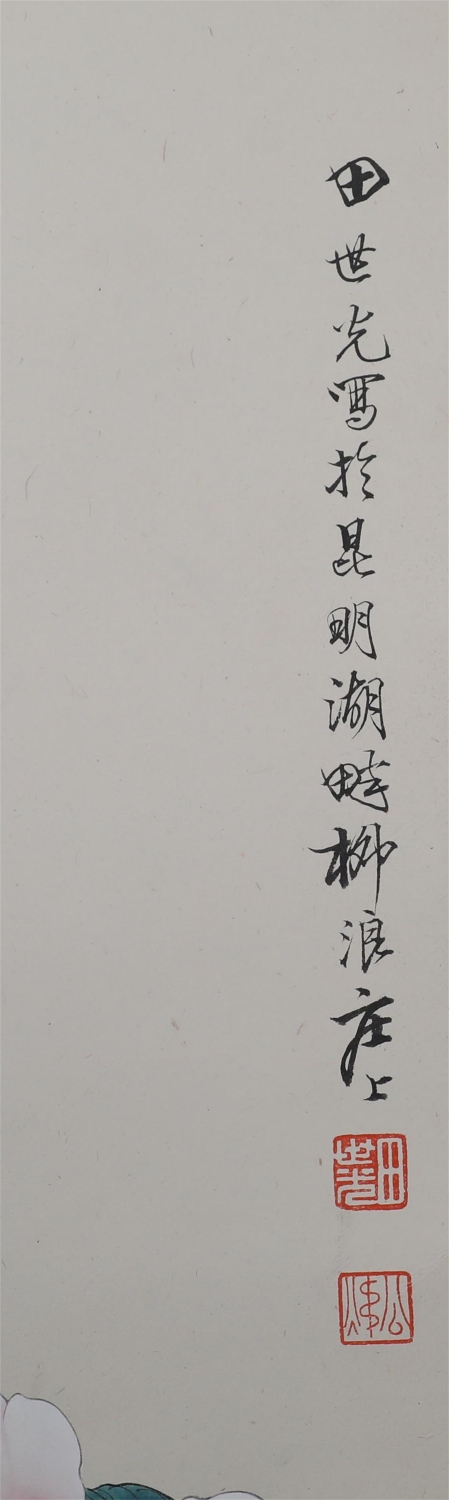 田世光寫於昆明湖畔柳浪庄上
田世光
公煒